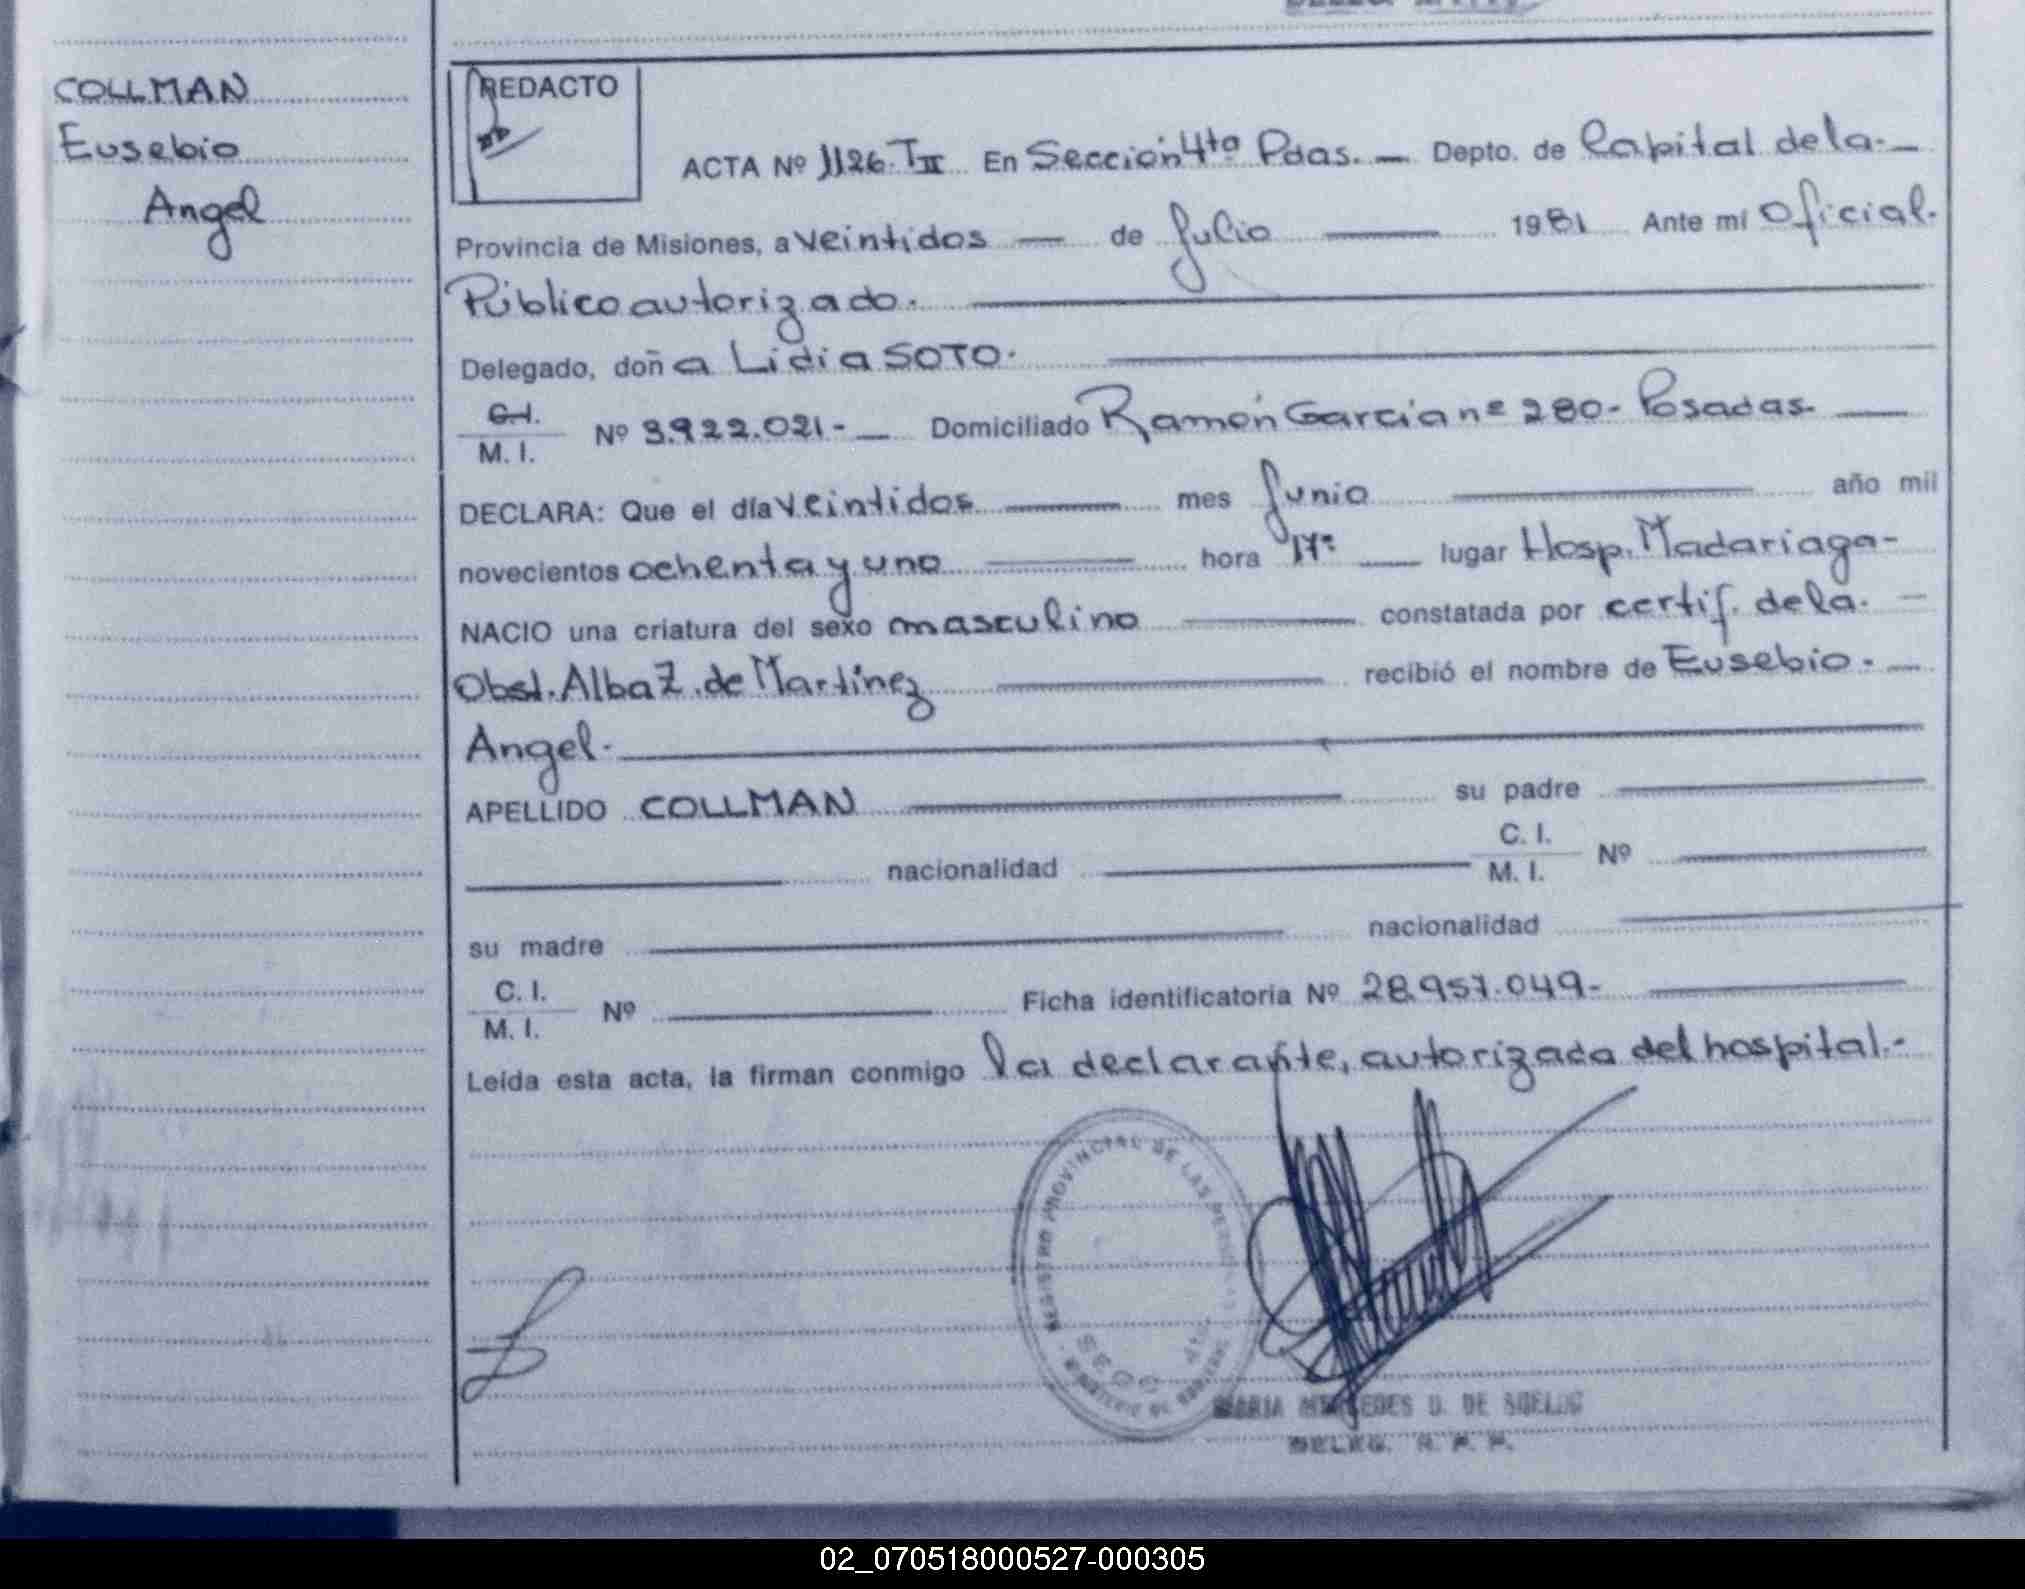 COLLMAN
Eusebio
Angel
REDACTO
ACTA Nº 1126. TII En Sección 4ta Pdas. — Depto. de Capital de la. —
Provincia de Misiones, a veintidos — de Julio — 1981 Ante mí Oficial.
Público autorizado.
Delegado, doña Lidia SOTO.
C.I. M. I. Nº 3.922.021.- — Domiciliado Ramón Garcia nº 280- Posadas. —
DECLARA: Que el día veintidos — mes Junio — año mil
novecientos ochenta y uno — hora 17º — lugar Hosp. Madariaga-
NACIO una criatura del sexo masculino — constatada por certif. de la. —
Obst. Alba Z. de Martinez — recibió el nombre de Eusebio. —
Angel. —
APELLIDO COLLMAN — su padre —
— nacionalidad — C. I. M. I. Nº —
su madre — nacionalidad —
C. I. M. I. Nº — Ficha identificatoria Nº 28.957.049- —
Leída esta acta, la firman conmigo la declarante, autorizada del hospital.-
REGISTRO PROVINCIAL DE LAS PERSONAS
MARIA MERCEDES D. DE
DELEG. R. P. P.
02_070518000527-000305